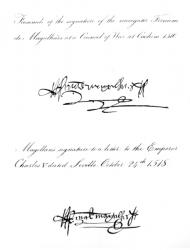 Facsimile of the signature of the navigator Fernam
de Magalhães at a Council of War at Cochim 1510.
Magellans signature to a letter to the Emperor
Charles V dated Seville October 24th 1518.